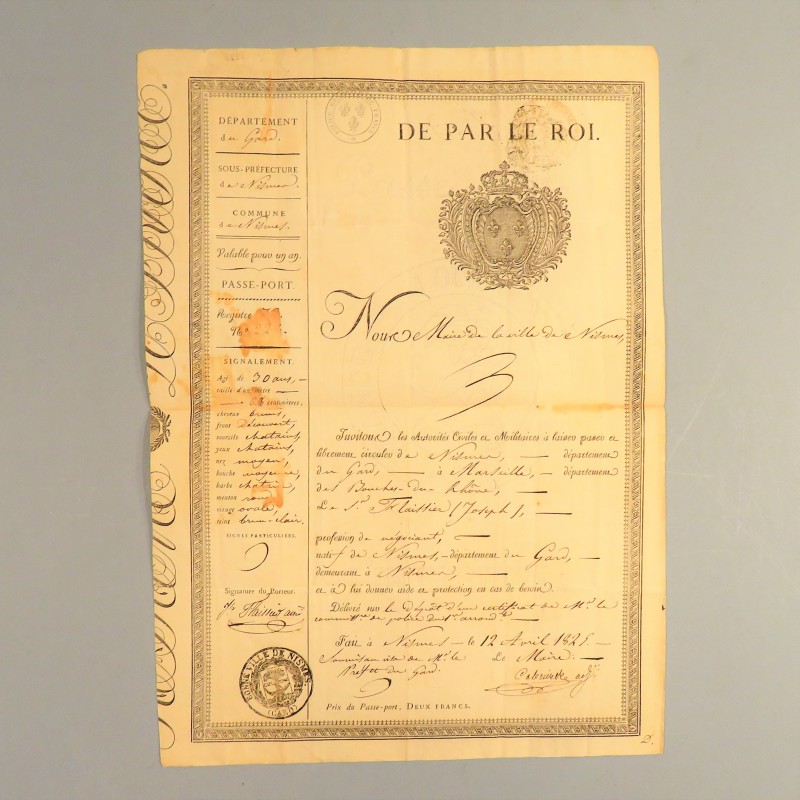 DÉPARTEMENT
du Gard.
SOUS-PRÉFECTURE
de Nismes.
COMMUNE
de Nismes.
Valable pour un an.
PASSE-PORT.
Registre
N.°
SIGNALEMENT.
Agé de 30 ans,
taille d'un mètre
68 centimètres,
cheveux bruns,
front Découvert,
sourcils chatains,
yeux chatains,
nez moyen,
bouche moyenne,
barbe chatain,
menton rond,
visage ovale,
teint brun-clair.
SIGNES PARTICULIERS.
Signature du Porteur.
Flaissier aîné
BONNE VILLE DE NISMES.
(GARD)
DE PAR LE ROI.
Nous Maire de la ville de Nismes,
Invitons les Autorités Civiles et Militaires à laisser passer et
librement circuler de Nismes, département
du Gard, à Marseille, département
des Bouches-du-Rhône,
Le S.r Flaissier (Joseph),
profession de négociant,
natif de Nismes, département du Gard,
demeurant à Nismes,
et à lui donner aide et protection en cas de besoin.
Délivré sur le Dépôt d'un certificat de M.r le
commiss.re de police du 1.er arrond.t
Fait à Nismes le 12 Avril 1825.
Soumis au visa de M.r le Le Maire.
Préfet du Gard.
Prix du Passe-port, DEUX FRANCS.